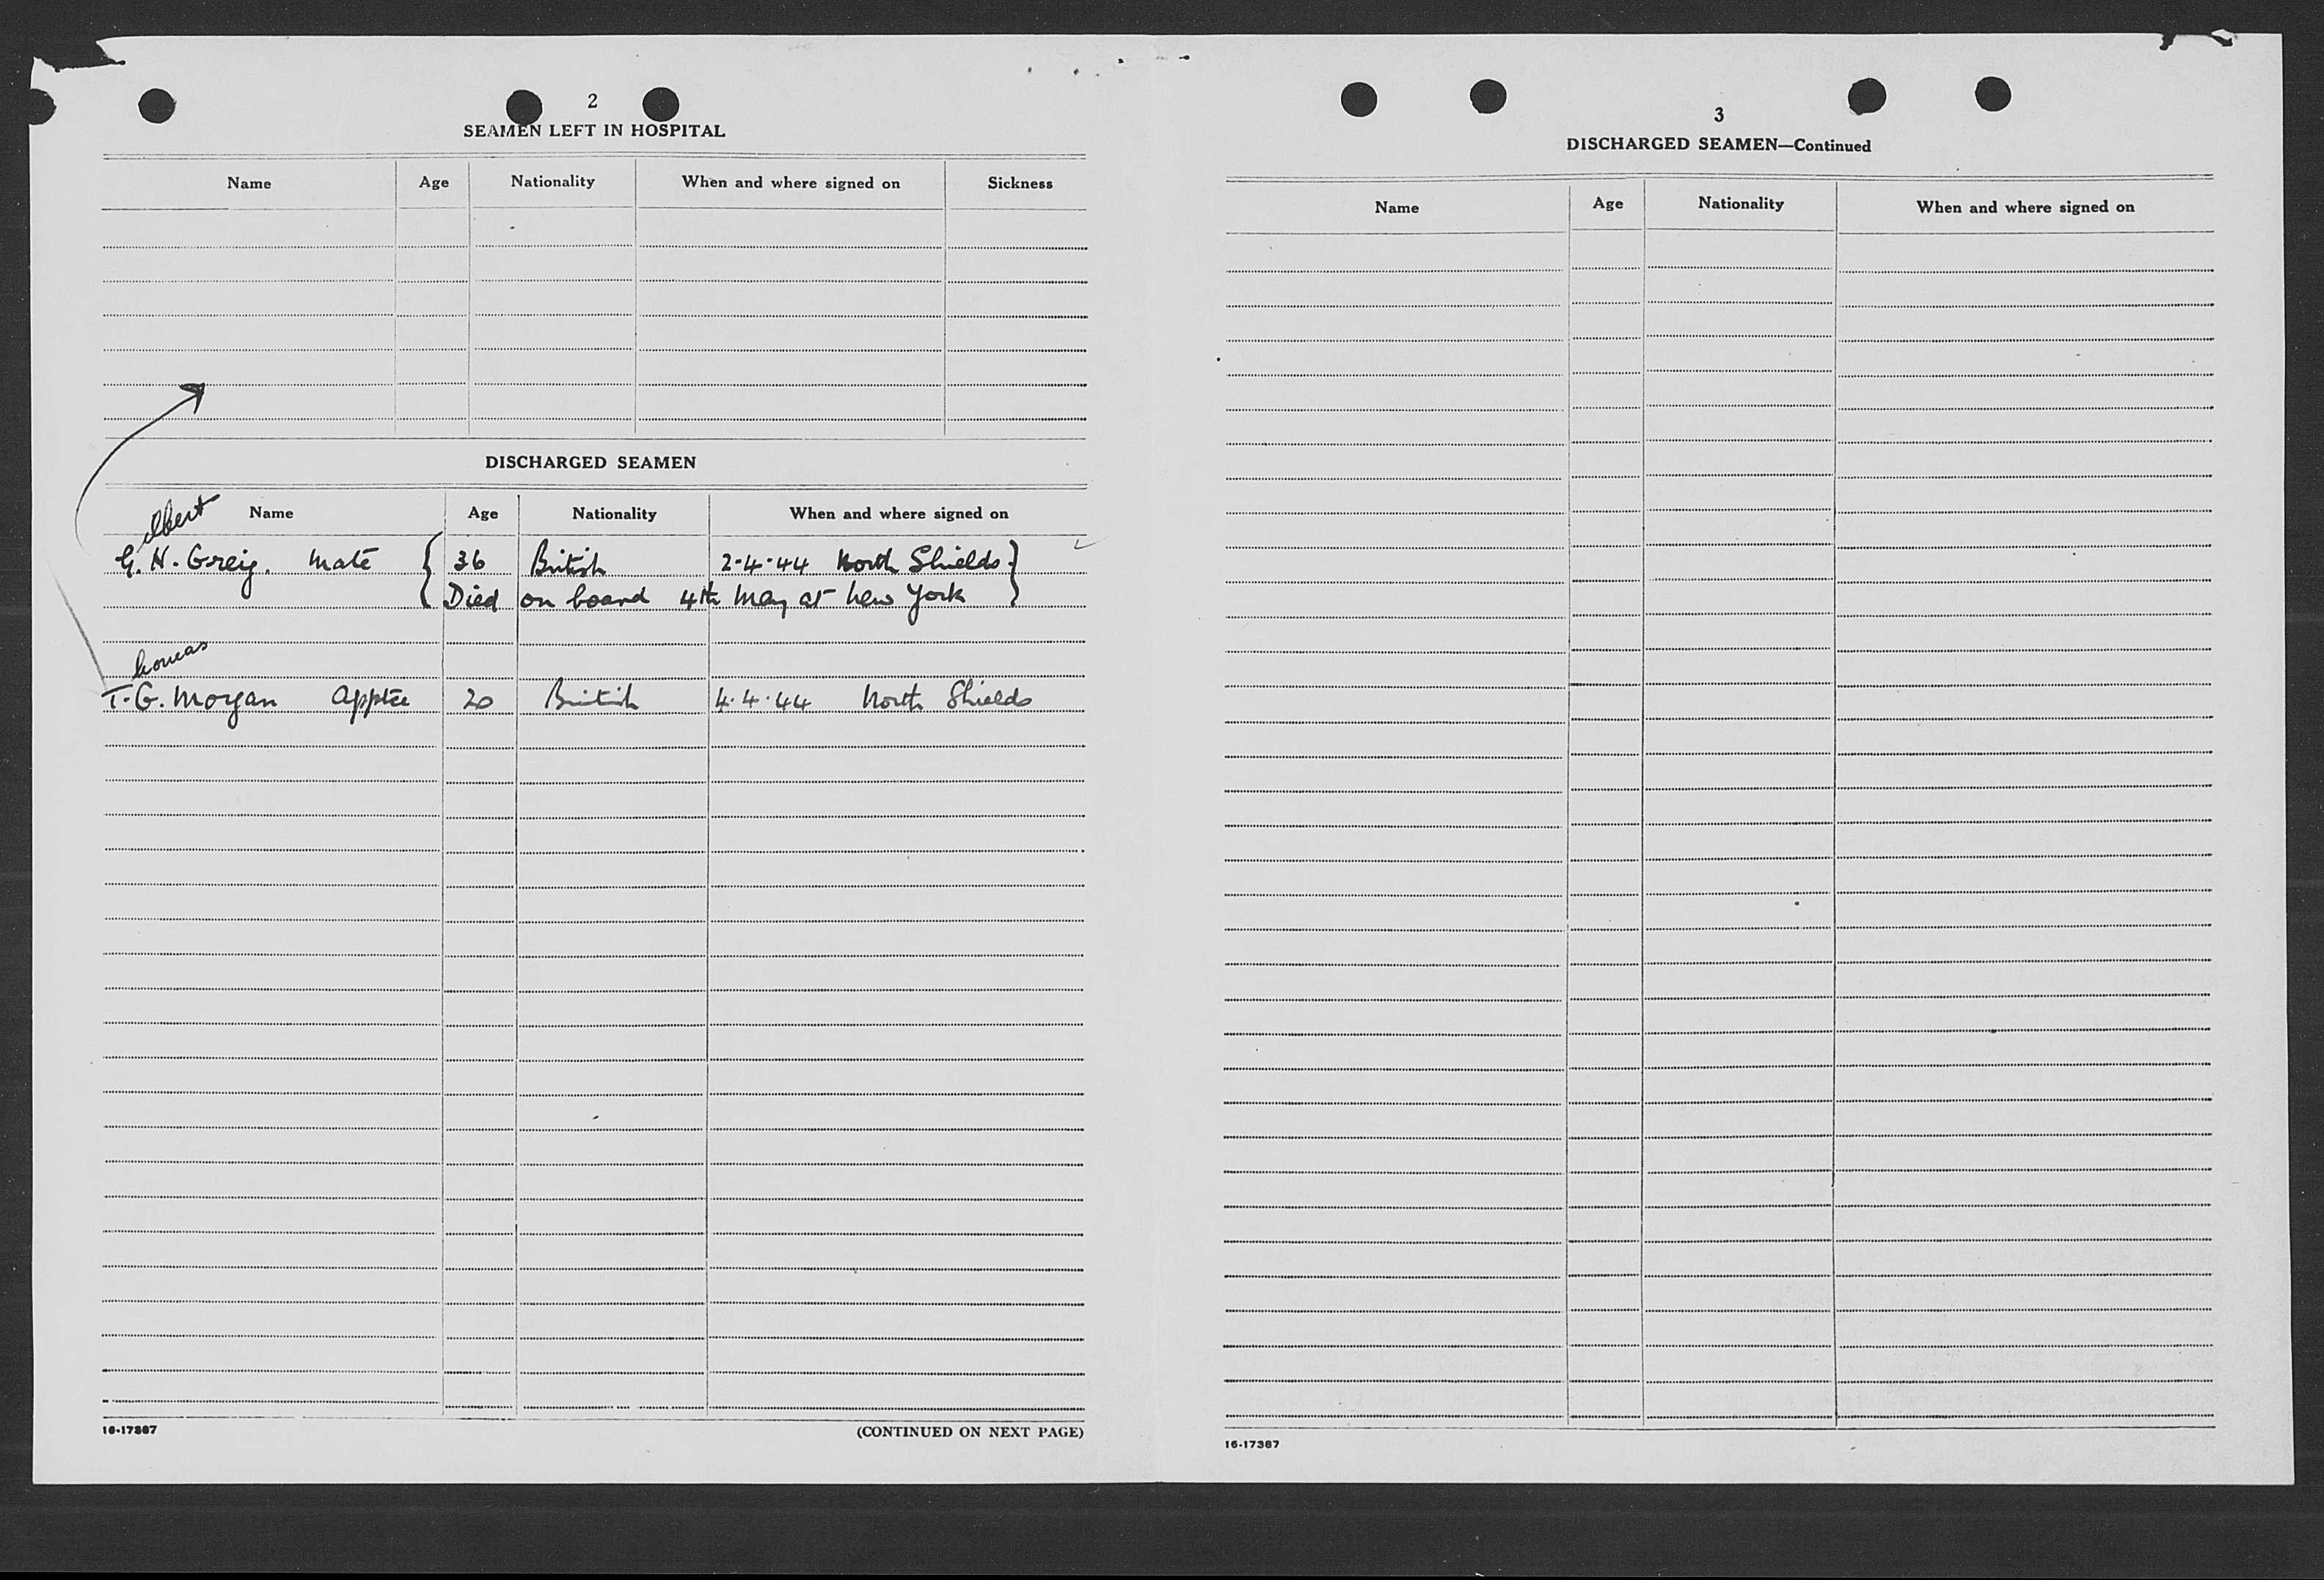 2
SEAMEN LEFT IN HOSPITAL
Name Age Nationality When and where signed on Sickness
DISCHARGED SEAMEN
Name Age Nationality When and where signed on
ilbert
G. H. Greig. Mate 36 British 2.4.44 North Shields.
Died on board 4th May at New York
homas
T. G. Morgan Apptce 20 British 4.4.44 North Shields
16-17387
(CONTINUED ON NEXT PAGE)
3
DISCHARGED SEAMEN—Continued
Name Age Nationality When and where signed on
16-17387